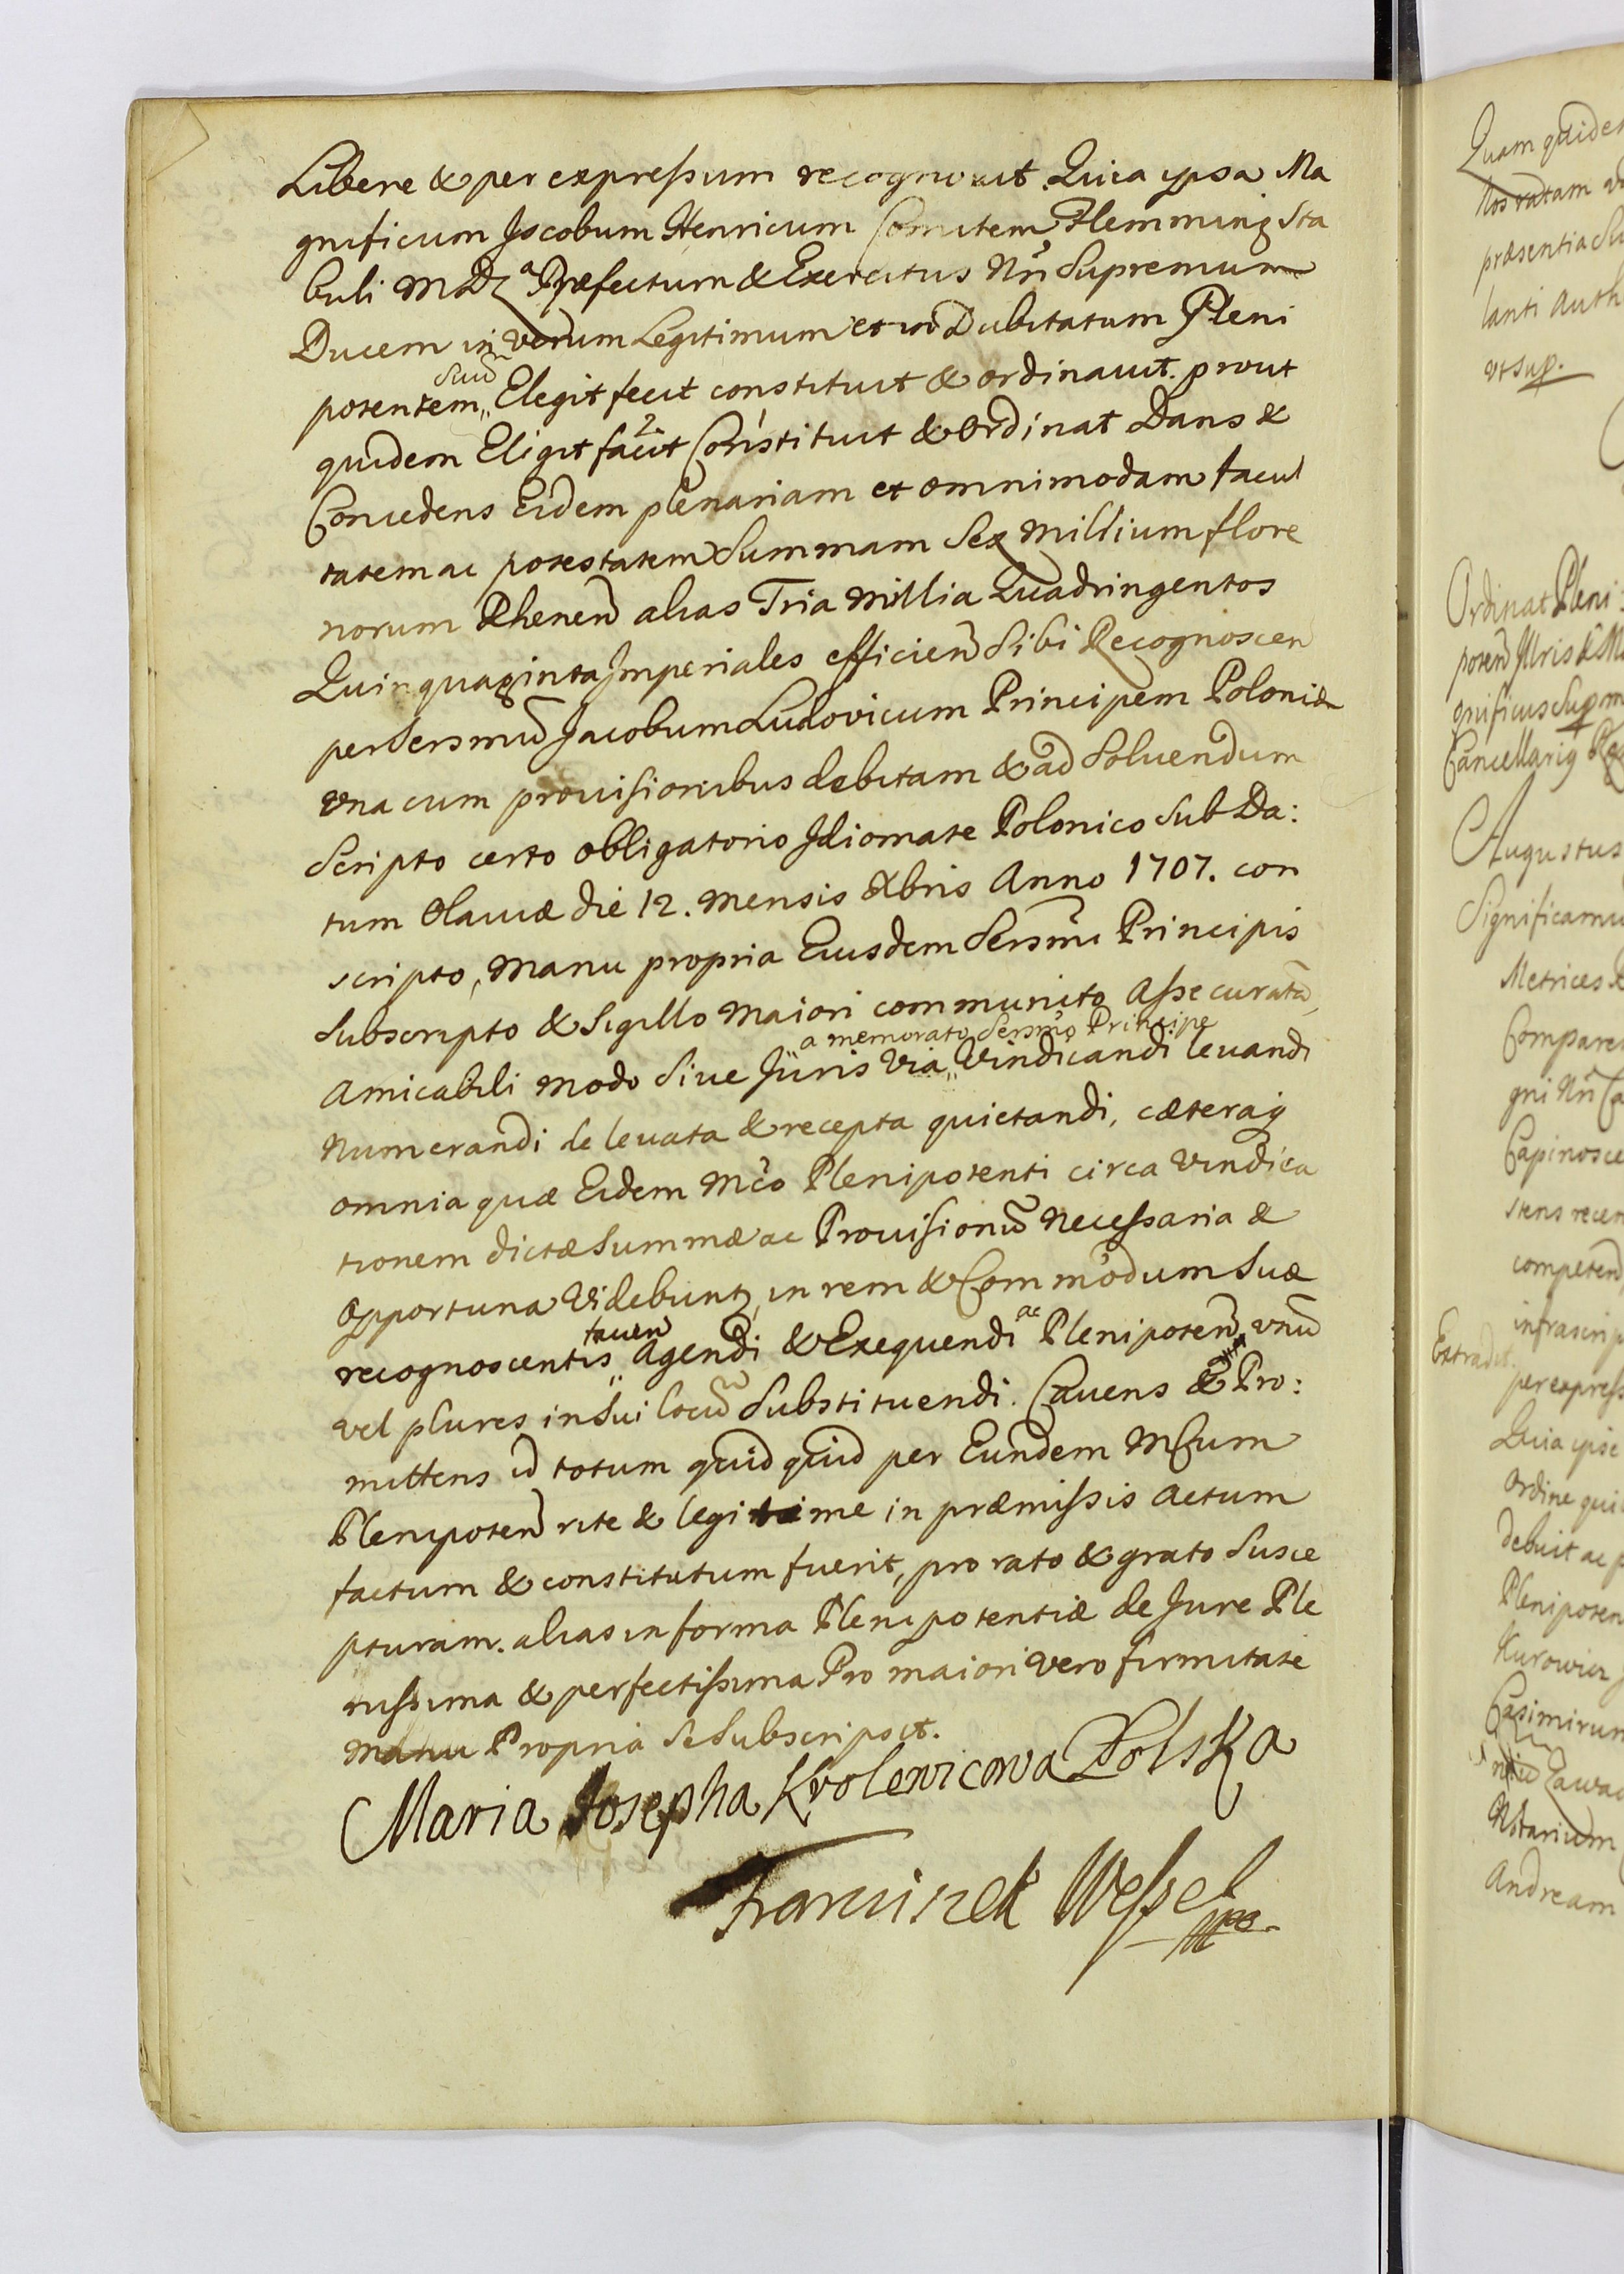 Libere & per expressum recognouit. Quia ipsa Ma
gnificum Jacobum Henricum Comitem Flemming Sta
buli MDL Præfectum & Exercitus Nri Supremum
Ducem in verum Legitimum et indubitatum Pleni
suũ
potentem,, Elegit fecit constituit & ordinauit. prout
quidem Eligit facit Constituit & Ordinat Dans &
Concedens Eidem plenariam et omnimodam facul
tatem ac potestatem Summam Sex Millium flore
norum Rhenen alias Tria Millia Quadringentos
Quinquaginta Imperiales efficien Sibi Recognoscen
per Sersmũ Jacobum Ludovicum Principem Poloniæ
vna cum prouisionibus debitam & ad Soluendum
Scripto certo obligatorio Idiomate Polonico Sub Da:
tum Olauiæ die 12. Mensis Xbris Anno 1707. con
scripto, Manu propria Eiusdem Sersmi Principis
Subscripto & Sigillo Maiori communito Assecuratã,
a memorato Sersmo Principe
Amicabili modo Siue Juris Via,, Vindicandi leuandi
Numerandi de leuata & recepta quietandi, cæteraq
omnia quæ Eidem Mco Plenipotenti circa Vindica
tionem dictæ Summæ ac Prouisionũ Necessaria &
opportuna Videbuntr, in rem & Commodum Suæ
recognoscentis,, Agendi & Exequendi ac Plenipoten vnũ
vel plures in Sui locũ Substituendi. Cauens & Pro:
mittens id totum quidquid per Eundem MCum
Plenipoten rite & legitime in præmissis actum
factum & constitutum fuerit, pro rato & grato Susce
pturam. alias in forma Plenipotentiæ de Jure Ple
nissima & perfectissima Pro maiori vero firmitate
Manu Propria Se Subscripsit.
Maria Josepha Krolewicowa Polska
Franciszek Wessel
mpp
Quam quidem
Nos ratam
præsentia
lanti Auth
vt sup.
Ordinat Pleni:
poten Illris & Ma
gnificus Supm
Cancellariq
Augustus
Significamu
Metrices
Compare
gni Nri Ca
Capinosce
stens recen
competen
infrascrip
Extradit.
per express
Quia ipse
Ordine qui
debuit ac p
Plenipoten
Kurowicz
Casimirum
Zawad
Notarium
Andream